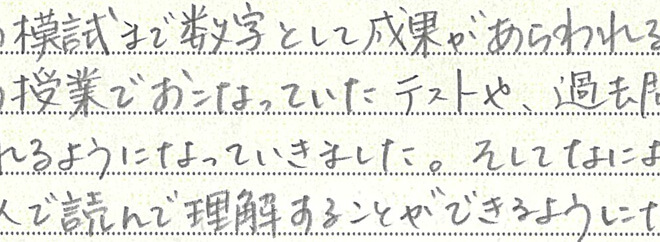 模試まで数字として成果があらわれる
授業でおこなっていたテストや、過去問
れるようになっていきました。そしてなによ
人で読んで理解することができるようにな